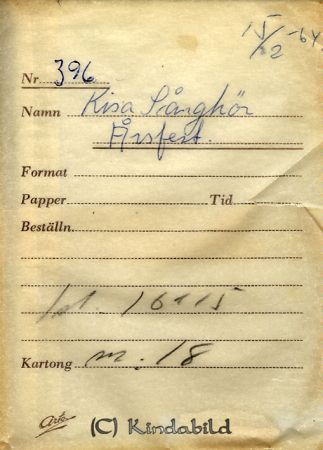 15/2 -64
Nr. 396
Namn Kisa Sångkör
Årsfest.
Format
Papper Tid
Beställn.
kl. 16115
Kartong nr. 18
Arto
(C) Kindabild